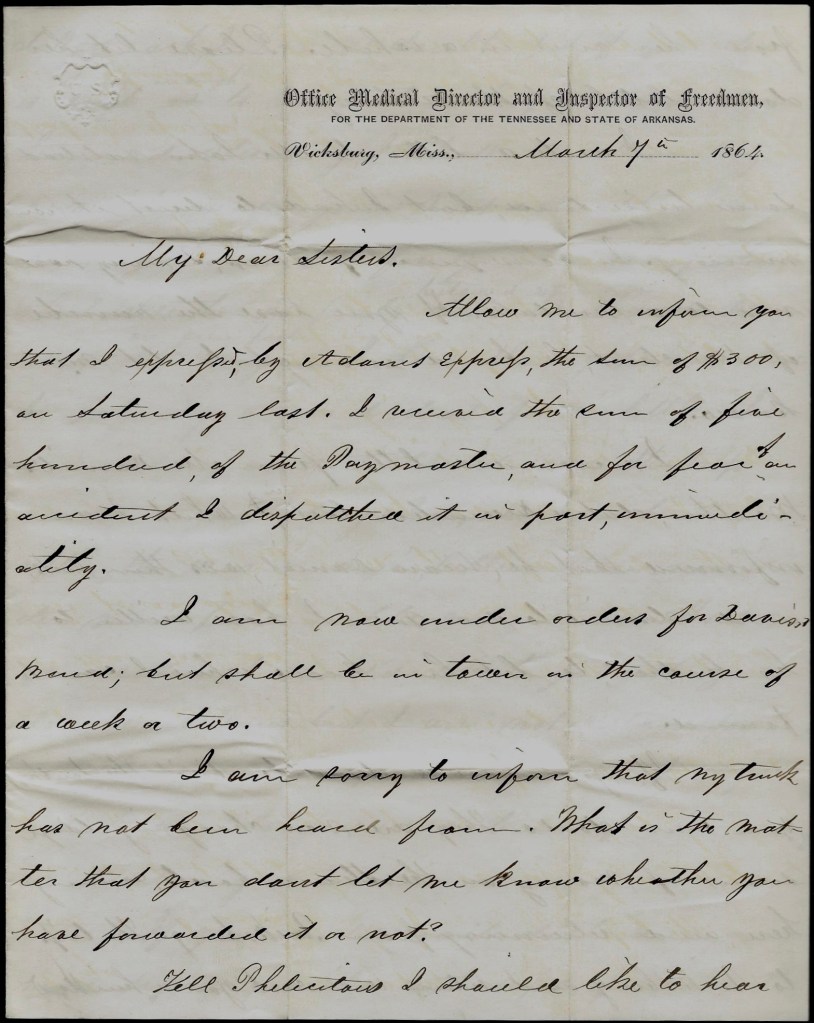 Office Medical Director and Inspector of Freedmen,
FOR THE DEPARTMENT OF THE TENNESSEE AND STATE OF ARKANSAS.
Vicksburg, Miss., March 7th 1864.
My Dear Sisters.
Allow me to inform you
that I expressed, by Adams Express, the sum of $300,
on Saturday last. I received the sum of five
hundred, of the Paymaster, and for fear of an
accident I dispatched it in part, immedi-
atily.
I am now under orders for Davis,
Bend; but shall be in town in the course of
a week or two.
I am sorry to inform that my trunk
has not been heard from. What is the mat-
ter that you dont let me know wheather you
have forwarded it or not?
Tell I should like to hear